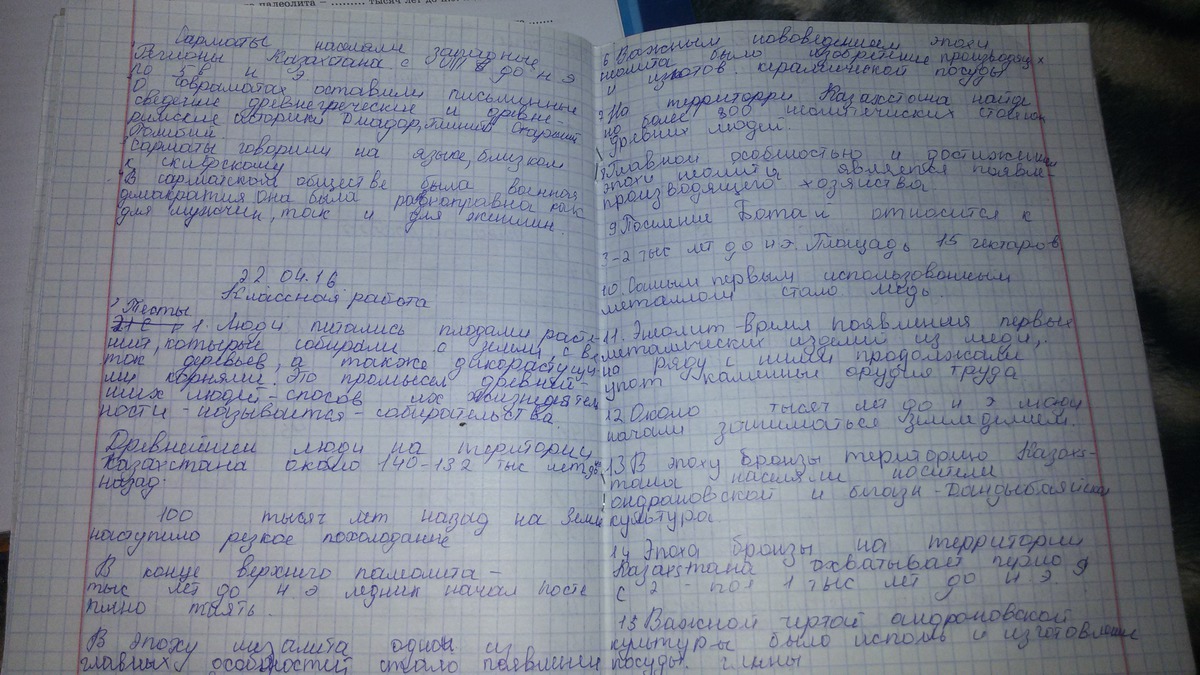 палеолита – ......... тысяч лет до
Сарматы населяли западные
Регионы Казахстана с до н э
по н э
О савроматах оставили письменные
сведение древнегреческие и древне-
римские историки Диадор,
Сарматы говорили на языке, близком
к скифскому
В сарматском обществе была военная
демакратия она была равноправна как
для мужчин, так и для женшин.
22.04.16
Классная работа
Тесты
1. Люди питались плодами расте-
ний, которые собирали с земли, с ве
ток деревьев, а также дикорастущи
ми корнями. Это промысел древней-
ших людей - способ их жизнедеятел
ности - называется - собирательства.
Древнейшеи люди на територии
Казахстана около 140-132 тыс лет
назад.
100 тысяч лет назад на Земле
наступило резкое похолодание
В конце верхнего палеолита -
тыс лет до н э ледник начал посте
пинно таять.
В эпоху мизалита одной из
главных особностий стало появлении
6 Важным нововедением эпохи
неолита было изобретение производящ х
и изготов. керамической посуды
На территорри Казахстана найде
но более 800 неолитических стоянок
древних людей.
Главной особностью и достижением
эпохи неолита является появле-
производящего хозяйства.
9 Поселение Ботаи относится к
3-2 тыс лет до н э. Площадь 15 гектаров
10. Самым первым использованным
металлом стало медь.
11. Энолит - время появления первых
металических изделий из меди,
на ряду с ними продолжали
упот каменные орудия труда
12. Около тысяч лет до н э люди
начали заниматься земледелием.
13 В эпоху бронзы територию Казахс-
тана населяли носители
андроновской и бигазы - Дандыбаяйской
культура.
14 Эпоха бронзы на территории
Казахстана охватывает пирио д
с 2 - пол 1 тыс лет до н э
15 Важной чертой андроновской
культуры было исполь и изготовление
посуды. глины